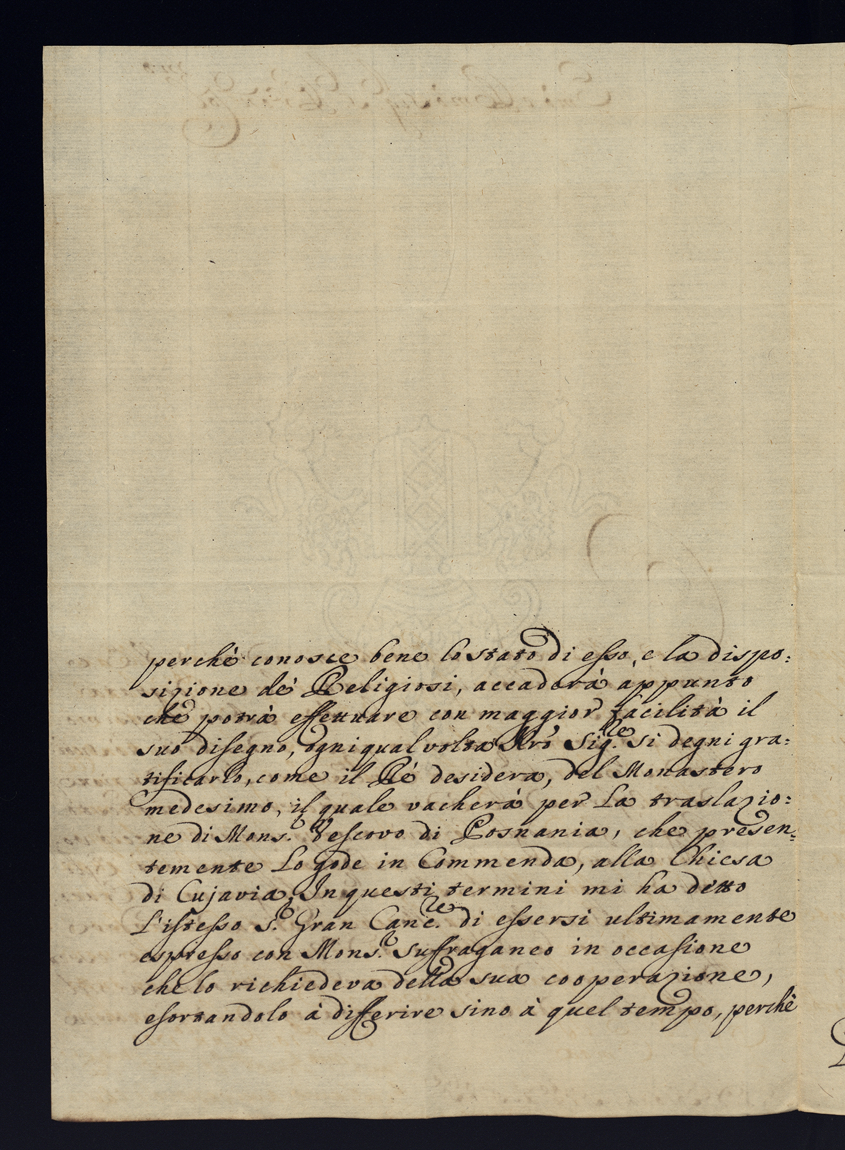 perchè conosce bene lo stato di esso, e la dispo:
sizione de' Religiosi, accaderà appunto
che potrà effettuare con maggior facilità il
suo disegno, ogniqualvolta Nrò Sig.re si degni gra:
tificarlo, come il Rè desidera, del Monastero
medesimo, il quale vacherà per la traslazio:
ne di Mons.r Vescovo di Posnania, che presen:
temente lo gode in Commenda, alla Chiesa
di Cujavia; In questi termini mi ha detto
l'istesso S.r Gran Canc.re di essersi ultimamente
espresso con Mons.r Suffraganeo in occasione
che lo richiedeva della sua cooperazione,
esortandolo à differire sino à quel tempo, perchè